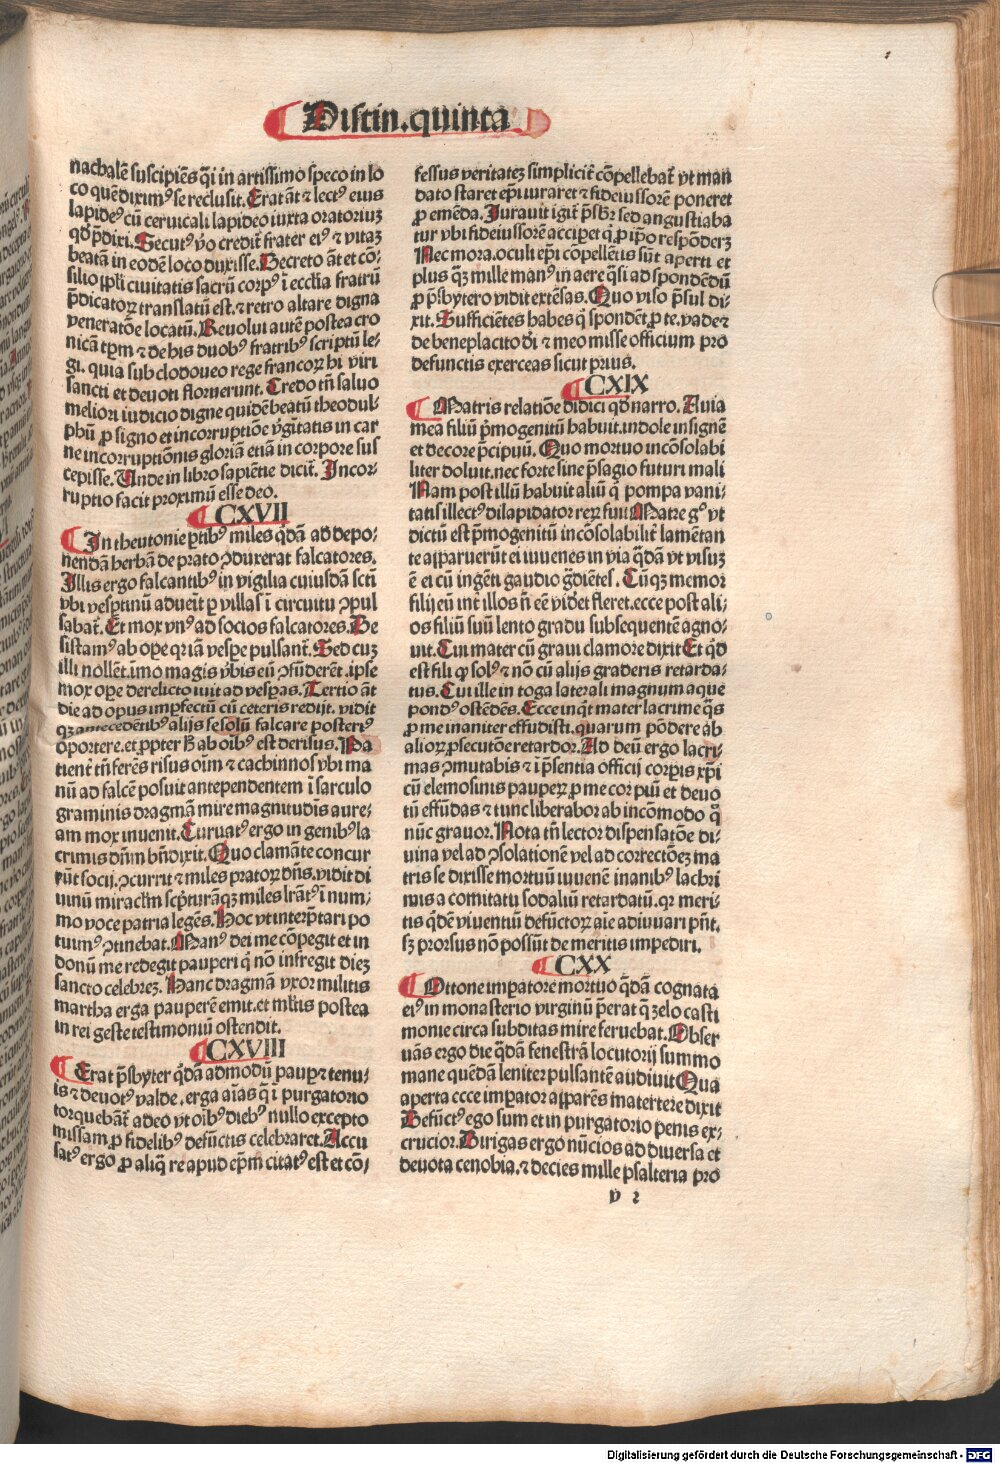 Distin.quinta
nachalē suscipiēs q̄i in artissimo speco in lo
co quē diximꝰ se reclusit. Erat āt ⁊ lectꝰ eius
lapideꝰ cū ceruicali lapideo iuxta oratoriuȝ
qd̄ p̄dixi. Secutꝰ ṽo credit̄ frater eiꝰ ⁊ vitaȝ
beatā in eodē loco duxisse. Decreto āt et cō-
silio ip̄iꝰ ciuitatis sacrū corpꝰ ī eccl̓ia fratrū
p̄dicatoꝝ translatū est. ⁊ retro altare digna
veneratōe locatū. Reuolui autē postea cro
nicā tp̄m ⁊ de his duobꝰ fratribꝰ scriptū le-
gi. quia sub clodoueo rege francoꝝ hi viri
sancti et deuoti floruerunt. Credo tn̄ saluo
meliori iudicio digne quidē beatū theodul-
phū ꝓ signo et incorruptiōe v̓ginitatis in car
ne incorruptionis gloriā etiā in corpore sus
cepisse. Unde in libro sapiētie dicit̄. Incor-
ruptio facit proximū esse deo.
CXVII
In theutonie ꝑtibꝰ miles qdā ad depo-
nendā herbā de prato ꝯduxerat falcatores.
Illis ergo falcantibꝰ in vigilia cuiusdā sc̄ti
vbi vesꝑtinū aduēit ꝑ villas ī circuitu ꝯpul
sabat̄. Et mox vnꝰ ad socios falcatores. De
sistamꝰ ab oꝑe qꝛ iā vesꝑe pulsant̄. Sed cuȝ
illi nollēt. imo magis v̓bis eū ꝯfūderēt. ipse
mox oꝑe derelicto iuit ad vesꝑas. Tertio āt
die ad opus imꝑfectū cū ceteris redijt. vidit
qȝ antecedētibꝰ alijs se solū falcare posteriꝰ
oportere. et ꝓpter ꝭ ab oībꝰ est derisus. Pa
tient̄ tn̄ ferēs risus oīm ⁊ cachinnos vbi ma
nū ad falcē posuit antependentem ī sarculo
graminis dragmā mire magnitudīs aure-
am mox inuenit. Curuatꝰ ergo in genibꝰ la
crimis dn̄m bn̄dixit. Quo clamāte concur
rūt socij. ꝯcurrit ⁊ miles pratoꝝ dn̄s. vidit di
uinū miracl̓m sc̓pturāqȝ miles lr̄atꝰ ī num-
mo voce patria legēs. Hoc vt interp̄tari po
tuimꝰ ꝯtinebat. Manꝰ dei me cōpegit et in
donū me redegit pauperi q̓ nō infregit dieȝ
sancto celebreȝ. Hanc dragmā vxor militis
martha erga pauperē emit. et ml̓tis postea
in rei geste testimoniū ostendit.
CXVIII
Erat p̄sbyter qdā admodū paupꝝ tenu-
is ⁊ deuotꝰ valde. erga aīas q̄ ī purgatorio
torquebāt̄ adeo vt oībꝰ diebꝰ nullo excepto
missam ꝓ fidelibꝰ defūctis celebraret. Accu
satꝰ ergo ꝓ aliq̄ re apud ep̄m citatꝰ est et cō-
fessus veritateȝ simplicit̄ cōpellebat̄ vt man
dato staret ep̄i iuraret ⁊ fideiussorē poneret
ꝓ emēda. Iurauit igit̄ p̄sbr̄ sed angustiaba
tur vbi fideiussorē acciꝑet q̓ ꝓ ip̄o respōderȝ
Nec mora. oculi ep̄i cōpellētis sūt aperti et
plus qȝ mille manꝰ in aere q̄si ad spondēdū
ꝓ p̄sbytero vidit extēsas. Quo viso p̄sul di-
xit. Sufficiētes habes q̓ spondēt ꝓ te. vade ⁊
de beneplacito dei ⁊ meo misse officium pro
defunctis exerceas sicut prius.
CXIX
Matris relatiōe didici qd̄ narro. Auia
mea filiū p̄mogenitū habuit. indole insignē
et decore p̄cipuū. Quo mortuo incōsolabi
liter doluit. nec forte sine p̄sagio futuri mali
Nam post illū habuit aliū q̓ pompa vani-
tatis illectꝰ dilapidator reꝝ fuit. Matre gꝰ vt
dictū est p̄mogenitū incōsolabilit̄ lamētan
te apparuerūt ei iuuenes in via qdā vt visuȝ
ē ei cū ingēti gaudio g̓diētes. Cūqȝ memor
filij eū int̄ illos n̄ eē videt fleret. ecce post ali-
os filiū suū lento gradu subsequentē agno-
uit. Cui mater cū graui clamore dixit. Et qd̄
est fili q̓ solꝰ ⁊ nō cū alijs graderis retarda-
tus. Cui ille in toga laterali magnum aque
pondꝰ ostēdēs. Ecce inq̓t mater lacrime q̄s
ꝓ me inaniter effudisti. quarum pōdere ab
alioꝝ ꝓsecutōe retardor. Ad deū ergo lacri-
mas ꝯmutabis ⁊ ī p̄sentia officij corꝑis xp̄i
cū elemosinis pauperꝝ ꝓ me cor piū et deuo
tū effūdas ⁊ tunc liberabor ab incōmodo q̊
nūc grauor. Nota tn̄ lector dispensatōe di-
uina vel ad ꝯsolationē vel ad correctōeȝ ma
tris se dixisse mortuū iuuenē inanibꝰ lachri
mis a comitatu sodaliū retardatū. qꝛ meri-
tis qdē viuentiū defūctoꝝ aīe adiuuari pn̄t.
sȝ prorsus nō possūt de meritis impediri.
CXX
Ottone imꝑatore mortuo qdā cognata
eiꝰ in monasterio virginū p̄erat q̄ zelo casti
monie circa subditas mire feruebat. Obser
uās ergo die qdā fenestrā locutorij summo
mane quēdā leniter pulsantē audiuit. Qua
aperta ecce imꝑator apparēs matertere dixit
Defūctꝰ ego sum et in purgatorio penis ex-
crucior. Dirigas ergo nūcios ad diuersa et
deuota cenobia. ⁊ decies mille psalteria pro
v 2
Digitalisierung gefördert durch die Deutsche Forschungsgemeinschaft - DFG